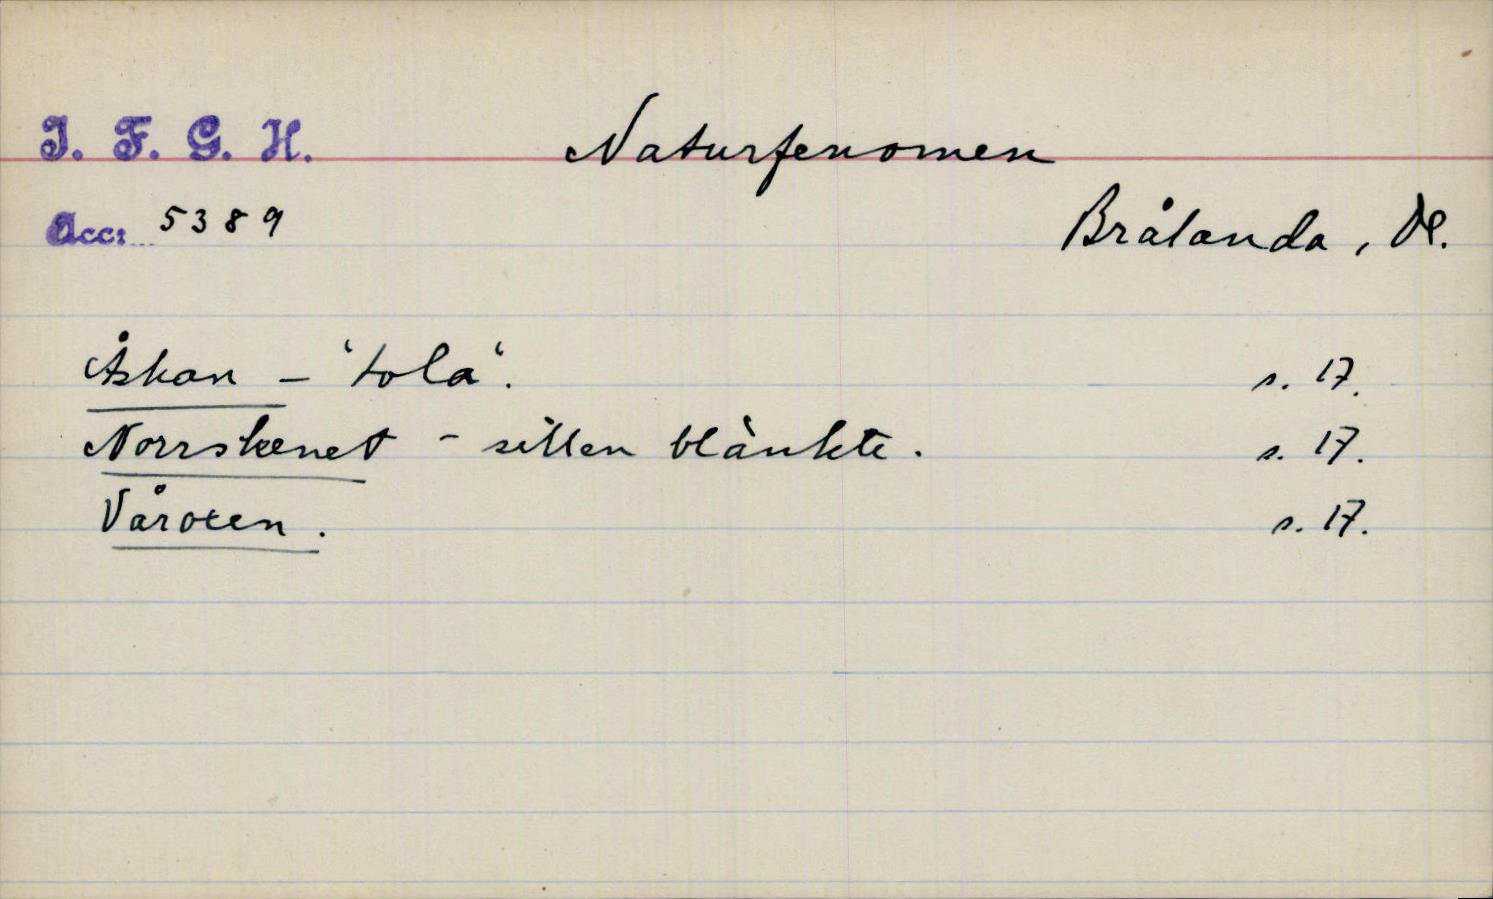 I. F. G. H. Naturfenomen
Acc: 5389 Brålanda, Dl.
Åskan – "tola". s. 17.
Norrskenet – sillen blänkte. s. 17.
Våroxen. s. 17.